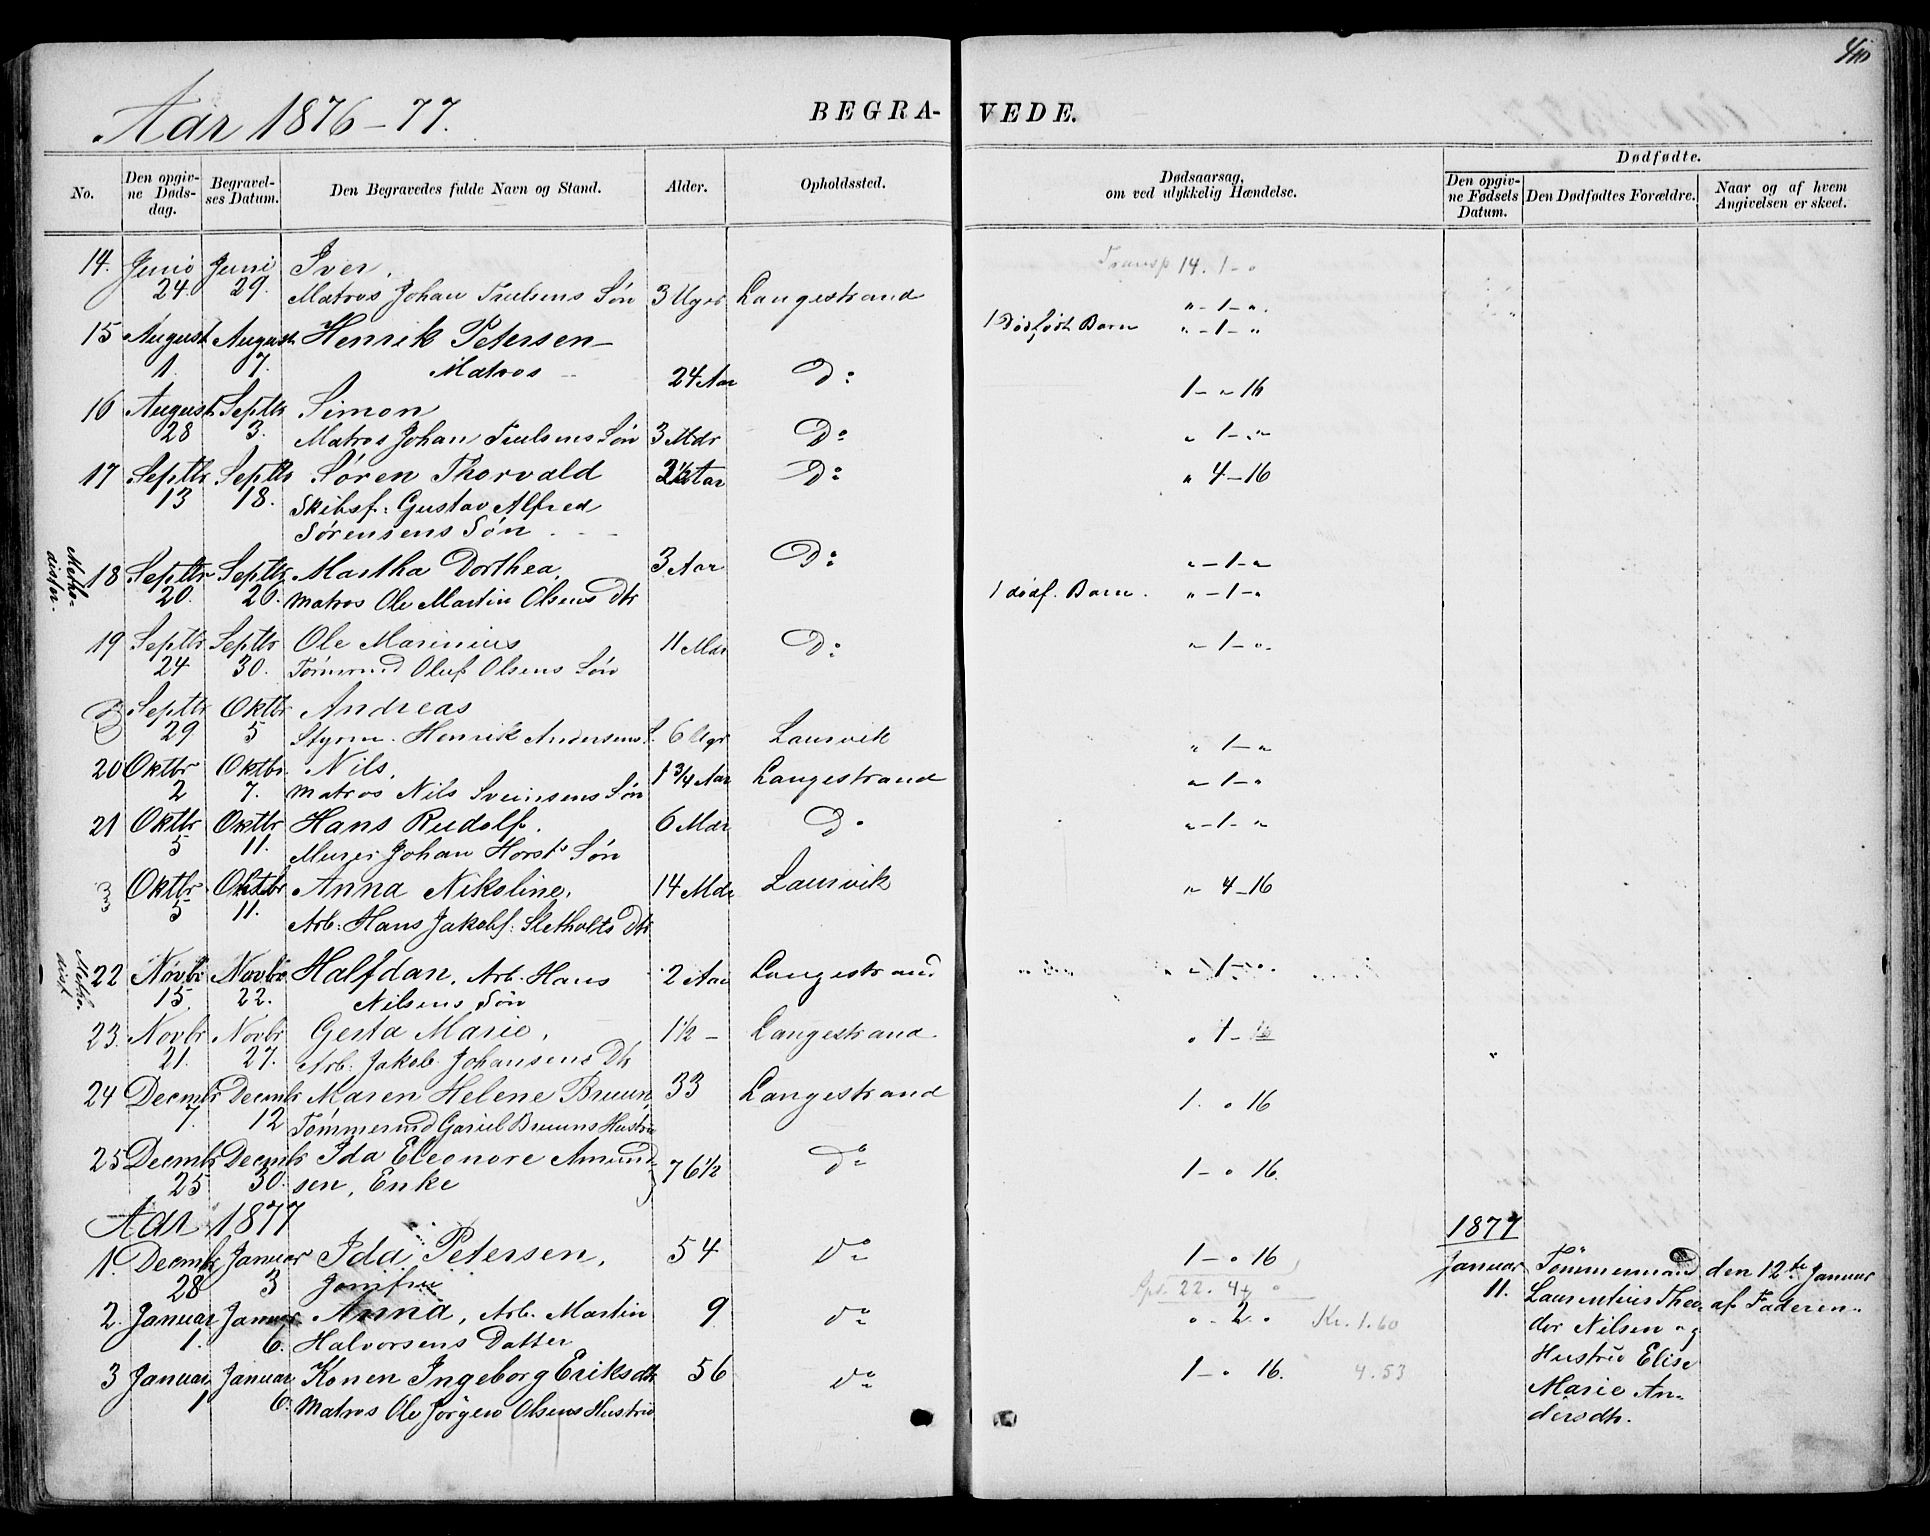 Aar 1876-77.
BEGRA-VEDE.
No.
Den opgivne Dødsdag.
Begravelses Datum.
Den Begravedes fulde Navn og Stand.
Alder.
Opholdssted.
Dødsaarsag, om ved ulykkelig Hændelse.
Dødfødte.
Den opgivne Fødsels Datum.
Den Dødfødtes Forældre.
Naar og af hvem Angivelsen er skeet.
14. Juni Juni Iver, Transp 14. 1-"
24. 29. Matros Johan Truelsens Søn 3 Uger Langestrand "-1-".
15 August August Henrik Petersen 1 Dødfødt Barn "-1-"
1. 7. Matros 24 Aar Do 1-"16
16 August Septbr Simon
28 3. Matros Johan Truelsens Søn 3 Mdr Do " 1-"
17 Septbr Septbr Søren Thorvald Aar Do " 4-16
13 18. Skibsf: Gustav Alfred
Sørensens Søn
Methodister.
18 Septbr Septbr Martha Dorthea, 3 Aar Do "-1-"
20. 26. Matros Ole Martin Olsens Dtr 1 dødf. Barn. "-1-"
19 Septbr Septbr Ole Marinius 11 Mdr Do "-1-".
24 30. Tømmermd Oluf Olsens Søn
Septbr Oktbr Andreas
29 5 Styrm. Henrik Andersens S. 6 Ugr Laurvik " 1-"
20 Oktbr Oktbr. Nils, 1 3/4 Aar Langestrand "-1-"
2 7. Matros Nils Svennsens Søn
21 Oktbr Oktbr Hans Rudolf. 6 Mdr Do "-1-"
5 11. Murer Johan Horst's Søn
Oktbr Oktbr Anna Nikoline, 14 Mdr Laurvik " 4-16
5 11. Arb: Hans Jakobs: Sletholts Dtr
Methodist
22 Novbr Novbr Halfdan, Arb. Hans 2 Aar Langestrand " 1-"
15. 22. Nilsens Søn
23. Novbr Novbr Gerta Marie, 1½ - Langestrand " 1-16
21. 27. Arb: Jakob Johansens Dtr
24 Decmbr Decmbr Maren Helene Bruun, 33 Langestrand 1. " 16
7. 12 Tømmermd Gariel Bruuns Hustru
25 Decmbr Decmbr Ida Eleonore Amund- 76½ Do 1-" 16.
25 30. sen, Enke
Aar 1877
1877
1. Decmbr Januar Ida Petersen, 54 Do 1-" 16
28 3 Jomfru 22. 4
2. Januar Januar Anna, Arb. Martin 9 Do ". 2 . Kr. 1.60
1. 6. Halvorsens Datter
3 Januar Januar Konen Ingeborg Eriksdtr 56 Do 1-" 16. 4.53
1 6. Matros Ole Jørgen Olsens Hustru
Januar 11.
Tømmermand
Laurentius Theo-
dor Nilsen og
Hustru Elise
Marie An-
dersdtr.
den 12te Januar
af Faderen